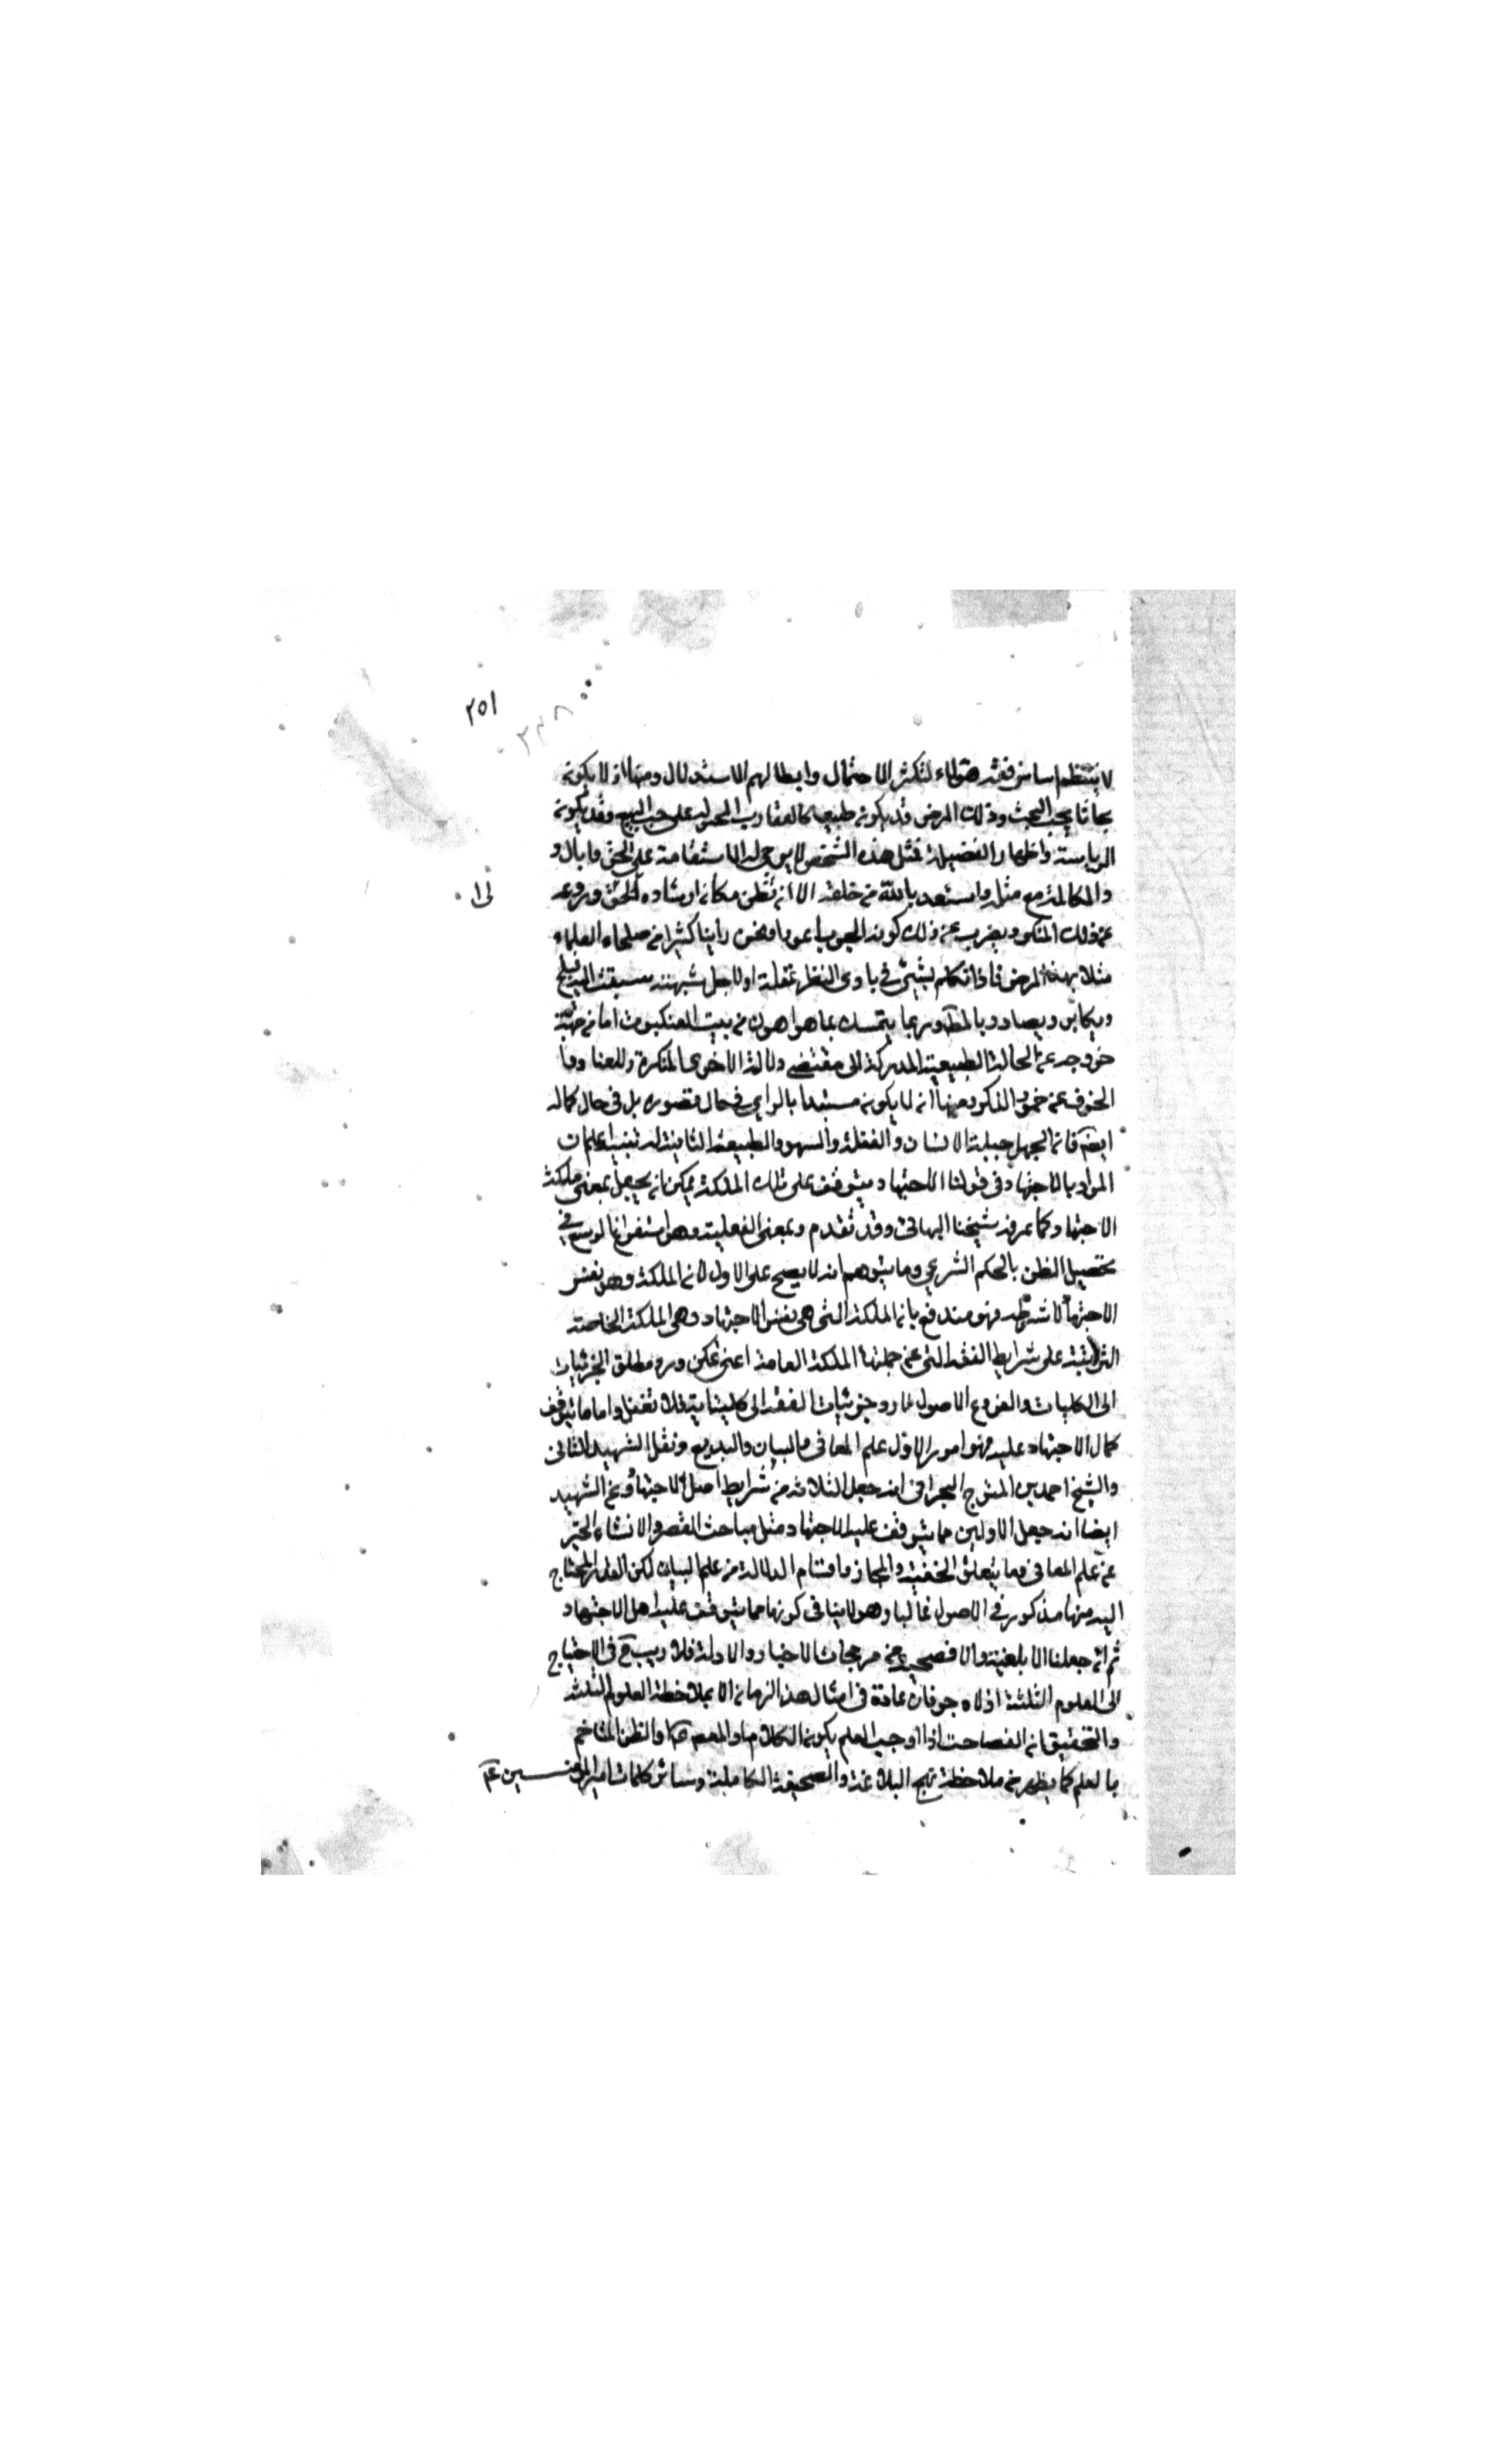 ٢٥١
٢٣٨
لا ينتظم اساس فقه هؤلاء لتكثر الاحتمال وابطالهم الاستدلال ومنها ان لا يكون
بحاثا يحب البحث وذلك المرض قد يكون طبيعيا كالعقارب المجبولة على حب اللسع وقد يكون
الرياسة واظهار الفضيلة فمثل هذه الشخص لا يرجى له الاستقامة على الحق واياك و
والمكالمة مع مثله واستعد بالله من خلقه الا ان تظن مكان ارشاده الحق وردعه
الى
عن ذلك المنكر وبضرب عن ذلك كونه لجوجا عنودا ونحن راينا كثيرا من صلحاء العلماء
مبتلا بهذه المرض فاذا تكلم بشيئ في بادى النظر غفلة او لاجل شبهة سبقت اليه فيلج
ويكابر ويصادر بالمط وربما يتمسك بما هو اهون من بيت العنكبوت اما من جهة
خروجه عن الحالة الطبيعية المدركة الى مقتضى دلالة الاخرى المنكرة وللعناد وما
الخوف عن خمود الذكر ومنها ان لا يكون مستبدا بالراي في حال قصوره بل في حال كماله
ايضا فان الجهل جبلة الانسان والغفلة والسهو والطبيعة الثانية له تنبيه اعلم ان
المراد بالاجتهاد في قولنا الاجتهاد يتوقف على تلك الملكة يمكن ان يجعل بمعنى ملكة
الاجتهاد كما عرفه شيخنا البهائي وقد تقدم وبمعنى الفعلية وهو استفراغ الوسع في
تحصيل الظن بالحكم الشرعي وما يتوهم انه لا يصح على الاول لان الملكة وهو نفس
الاجتهاد لا شرطه فهو مندفع بان الملكة التي هي نفس الاجتهاد وهي الملكة الخاصة
المترتبة على شرايط الفقه التي من جملتها الملكة العامة اعنى تمكن ورد مطلق الجزئيات
الى الكليات والفروع الاصول لا رد جزئيات الفقه الى كلياتها فلا تغفل واما ما يتوقف
كمال الاجتهاد عليه فهو امور الاول علم المعانى والبيان والبديع ونقل الشهيد الثانى
والشيخ احمد بن المتوج البحرانى انه جعل الثلاثة من شرايط اصل الاجتهاد وعن الشهيد
ايضا انه جعل الاولين مما يتوقف عليه الاجتهاد مثل مباحث القصر والانشاء الخبر
من علم المعانى وما يتعلق الحقيقة والمجاز واقسام الدلالة من علم البيان لكن القدر المحتاج
اليه منها مذكور في الاصول غالبا وهو لا ينافى كونها مما يتوقف عليه اصل الاجتهاد
ثم ان جعلنا الابلغية والافصحية من مرجحات الاخبار والادلة فلا ريب ح فى الاحتياج
الى العلوم الثلثة اذ لا يعرفان عادة فى امثال هذا الزمان الا بملاحظة العلوم الثلثة
والتحقيق ان الفصاحة اذا اوجب العلم بكون الكلام من المعصوم والظن المتاخم
بالعلم كما يظهر من ملاحظة نهج البلاغة والصحيفة الكاملة وسائر كلمات امير المؤمنسين ع